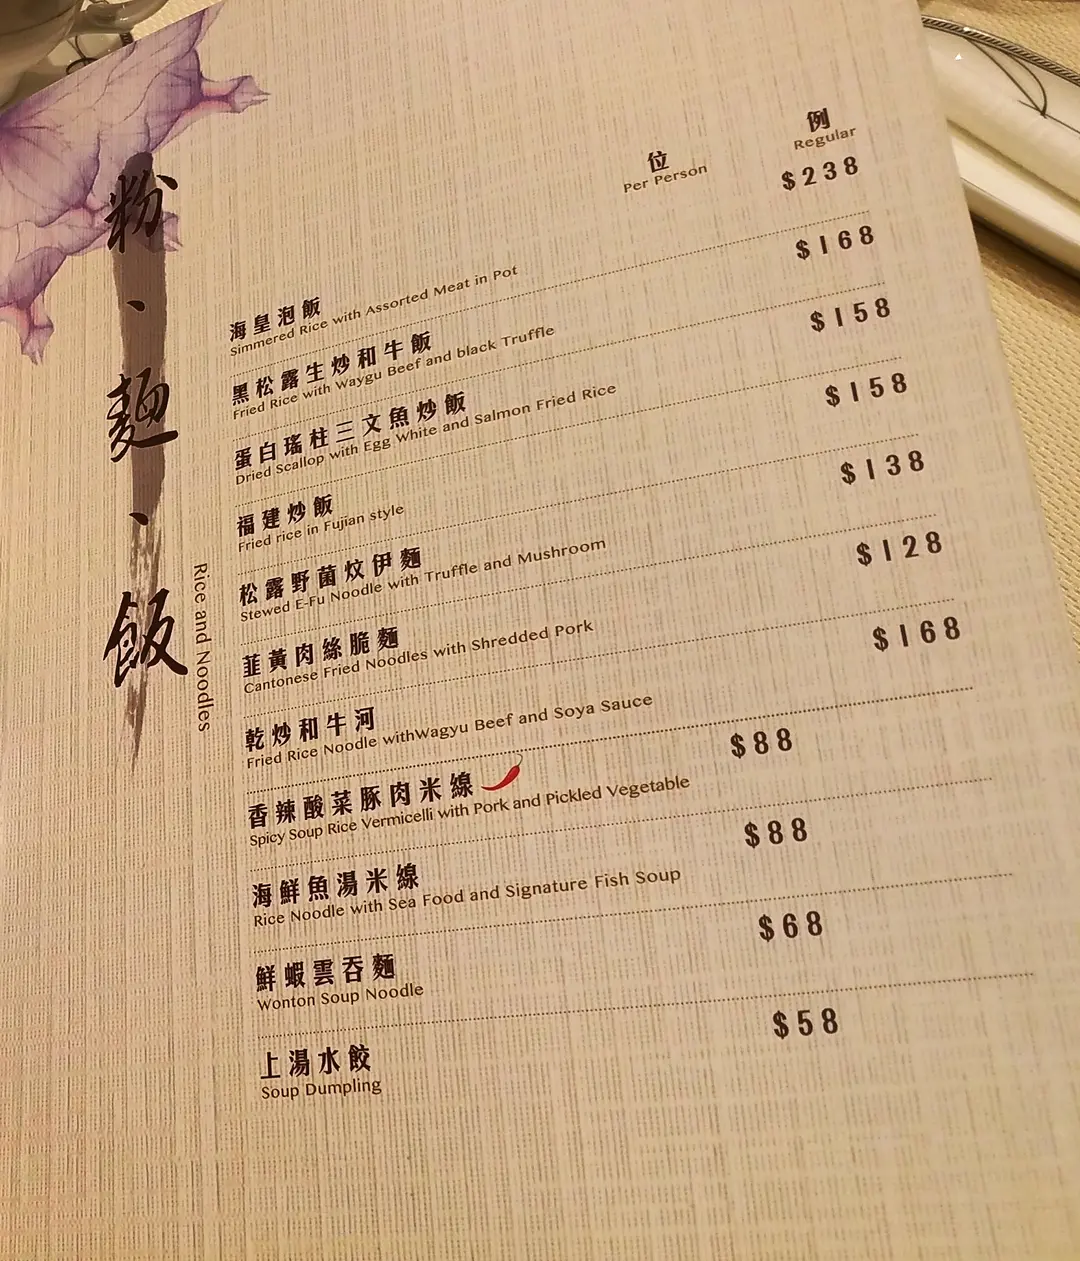 粉、麵、飯
Rice and Noodles
位
Per Person
例
Regular
海皇泡飯
$238
Simmered Rice with Assorted Meat in Pot
黑松露生炒和牛飯
$168
Fried Rice with Waygu Beef and black Truffle
蛋白瑤柱三文魚炒飯
$158
Dried Scallop with Egg White and Salmon Fried Rice
福建炒飯
$158
Fried rice in Fujian style
松露野菌炆伊麵
$138
Stewed E-Fu Noodle with Truffle and Mushroom
韮黃肉絲脆麵
$128
Cantonese Fried Noodles with Shredded Pork
乾炒和牛河
$168
Fried Rice Noodle withWagyu Beef and Soya Sauce
香辣酸菜豚肉米線
$88
Spicy Soup Rice Vermicelli with Pork and Pickled Vegetable
海鮮魚湯米線
$88
Rice Noodle with Sea Food and Signature Fish Soup
鮮蝦雲吞麵
$68
Wonton Soup Noodle
上湯水餃
$58
Soup Dumpling